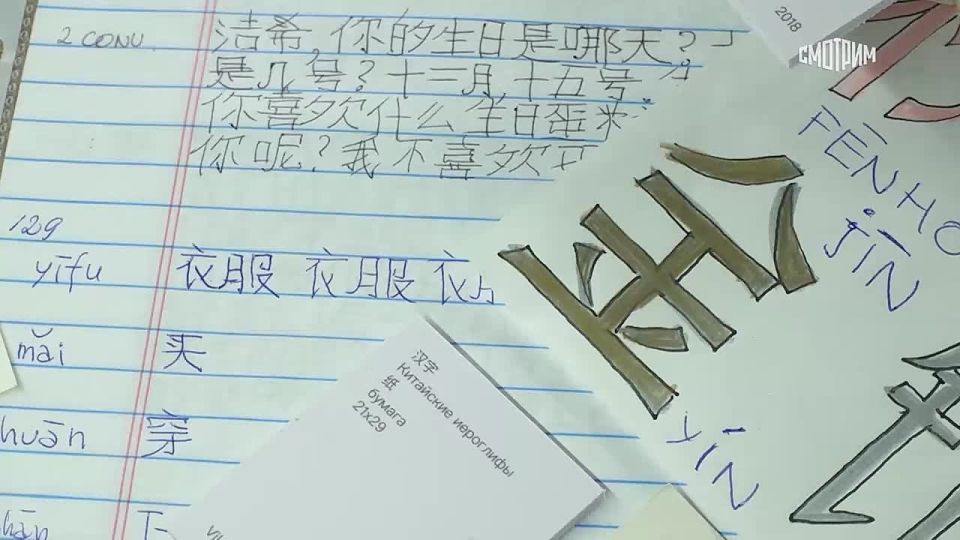 2 CONV.
洁希,你的生日是哪天?
是几号?十三月,十五号
你喜欢什么生日蛋
你呢?我不喜欢
129
yīfu 衣服 衣服 衣
mǎi 买
huān 穿
hān 下
2018
СМОТРИМ
FĒNHO
JĪN
金
YÍN
汉字
Китайские иероглифы
纸
бумага
21x29